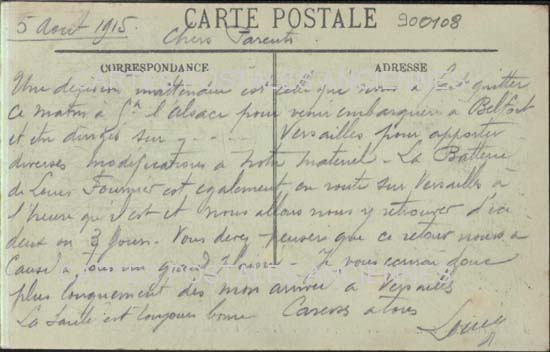 CARTE POSTALE
900108
5 Aout 1915.
Chers Parents
CORRESPONDANCE
ADRESSE
Une décision inattendue est celle que nous a fait quitter
ce matin à 5h l'alsace pour venir embarquer à Belfort
et être dirigés sur - - - - Versailles pour apporter
diverses modifications à notre materiel - La Batterie
de Louis Fournier est egalement en route sur Versailles à
l'heure qu'il est et nous allons nous y retrouver d'ici
deux ou 3 jours. Vous devez penser que ce retour nous a
causé à tous un grand - Je vous ecrirai donc
plus longuement dès mon arrivée à Versailles
La Santé est toujours bonne Caresses à tous
Louis